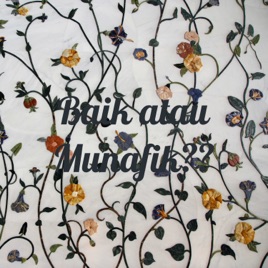 Baik atau
Munafik??